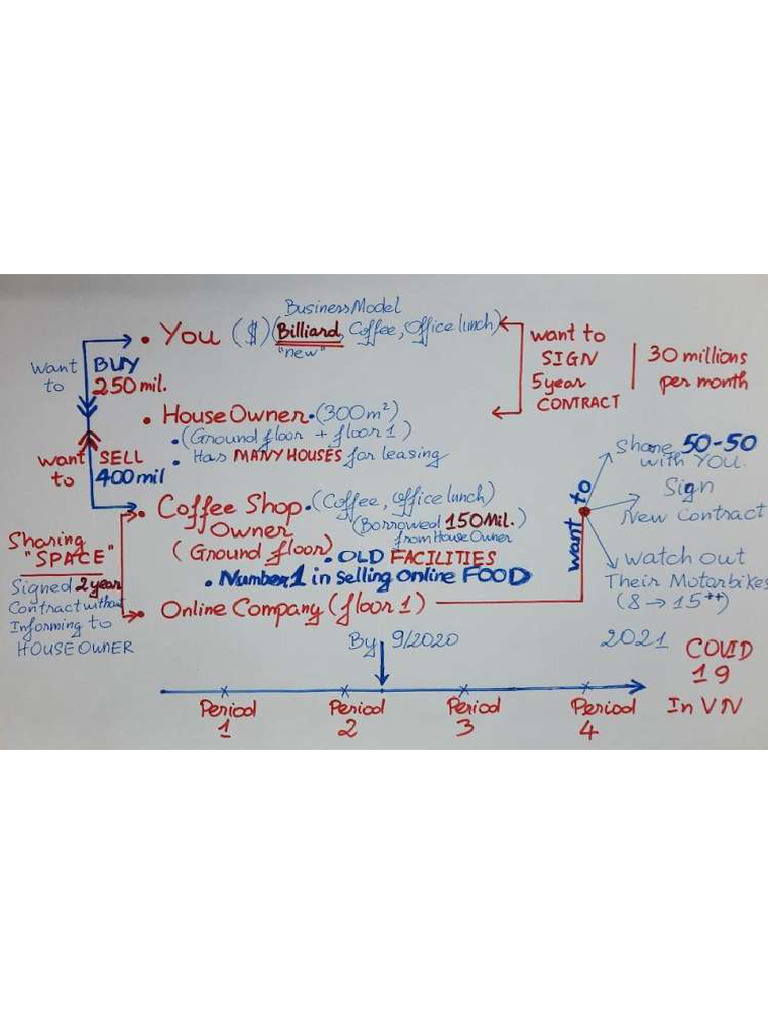 Business Model
• You ($) (Billiard, Coffee, Office lunch)
"new"
want to
BUY
250 mil.
want to
SIGN
5 year
CONTRACT
30 millions
per month
• House Owner • (300m²)
• (Ground floor + floor 1)
• Has MANY HOUSES for leasing
want to
SELL
400 mil
• Coffee Shop Owner
• (Coffee, office lunch)
(Borrowed 150 Mil.)
from House Owner
(Ground floor)
• OLD FACILITIES
• Number 1 in selling online FOOD
Sharing
"SPACE"
Signed 2 year
Contract without
Informing to
HOUSE OWNER
• Online Company (floor 1)
want to
Share 50-50
with YOU.
Sign
New Contract
Watch out
Their Motorbikes
(8 → 15⁺⁺)
By 9/2020
2021
COVID
19
In VN
Period
1
Period
2
Period
3
Period
4